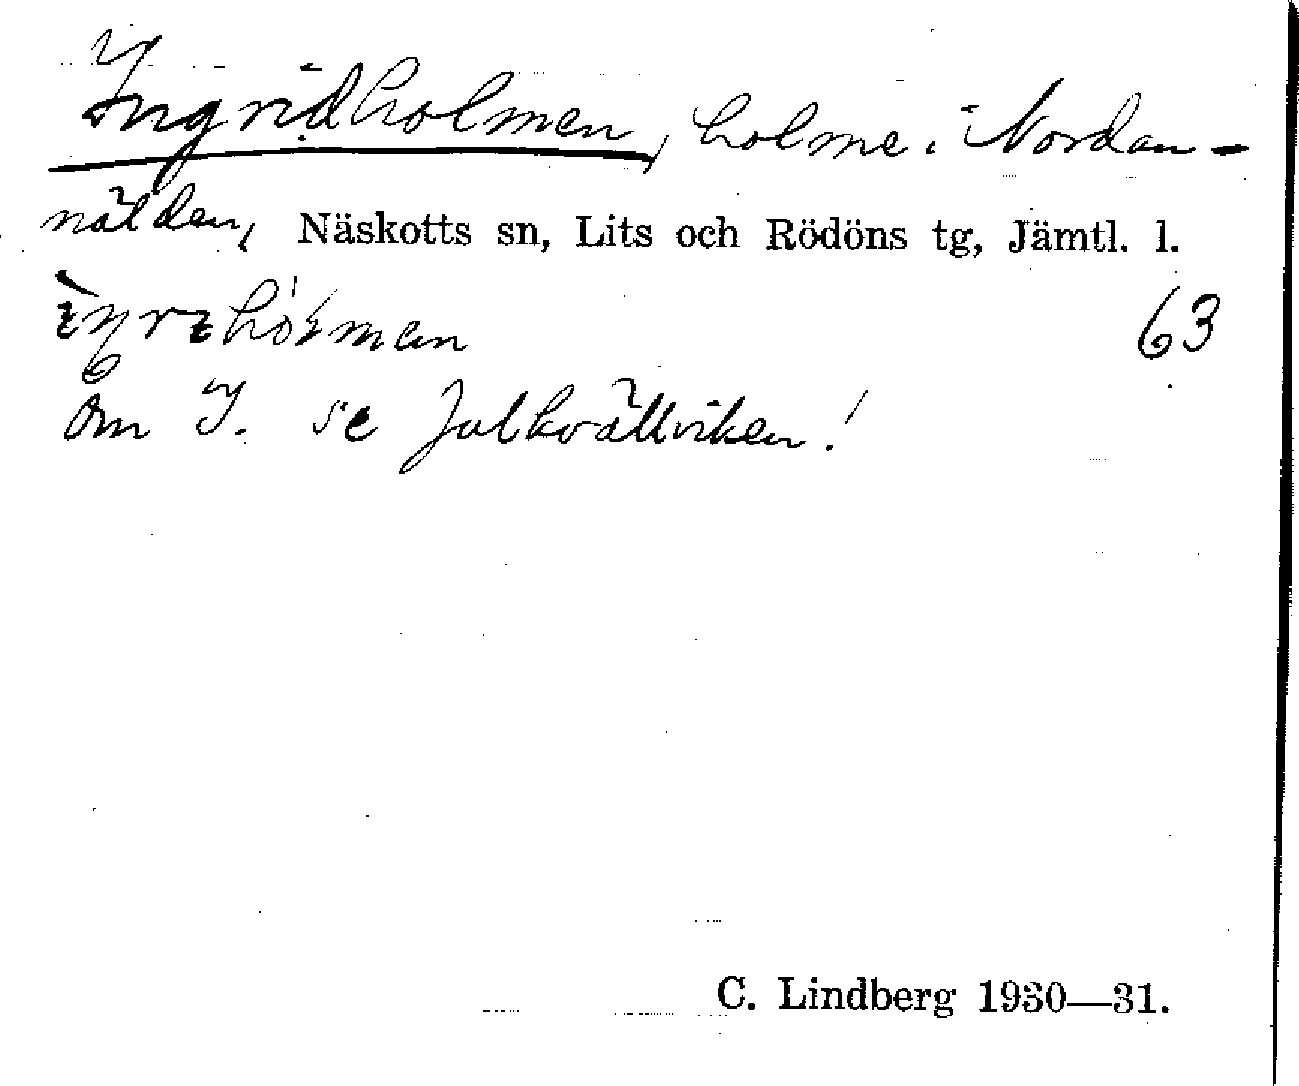 Ingridholmen, holme i Nordan-
nälden, Näskotts sn, Lits och Rödöns tg, Jämtl. l.
63
Om I. se Julkvällviken!
C. Lindberg 1930—31.